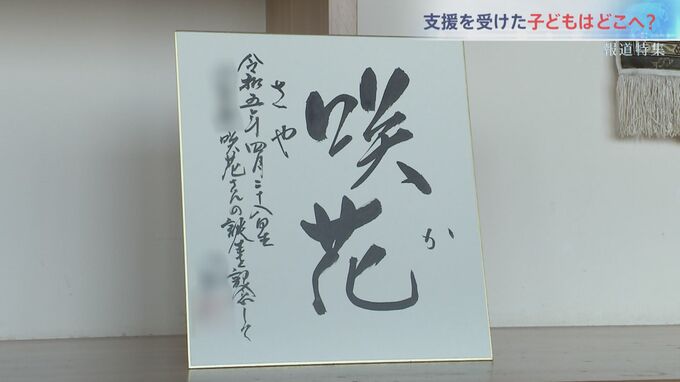 支援を受けた子どもはどこへ？
報道特集
咲花
か
さや
令和五年四月二十八日生
咲花さんの誕生記念として